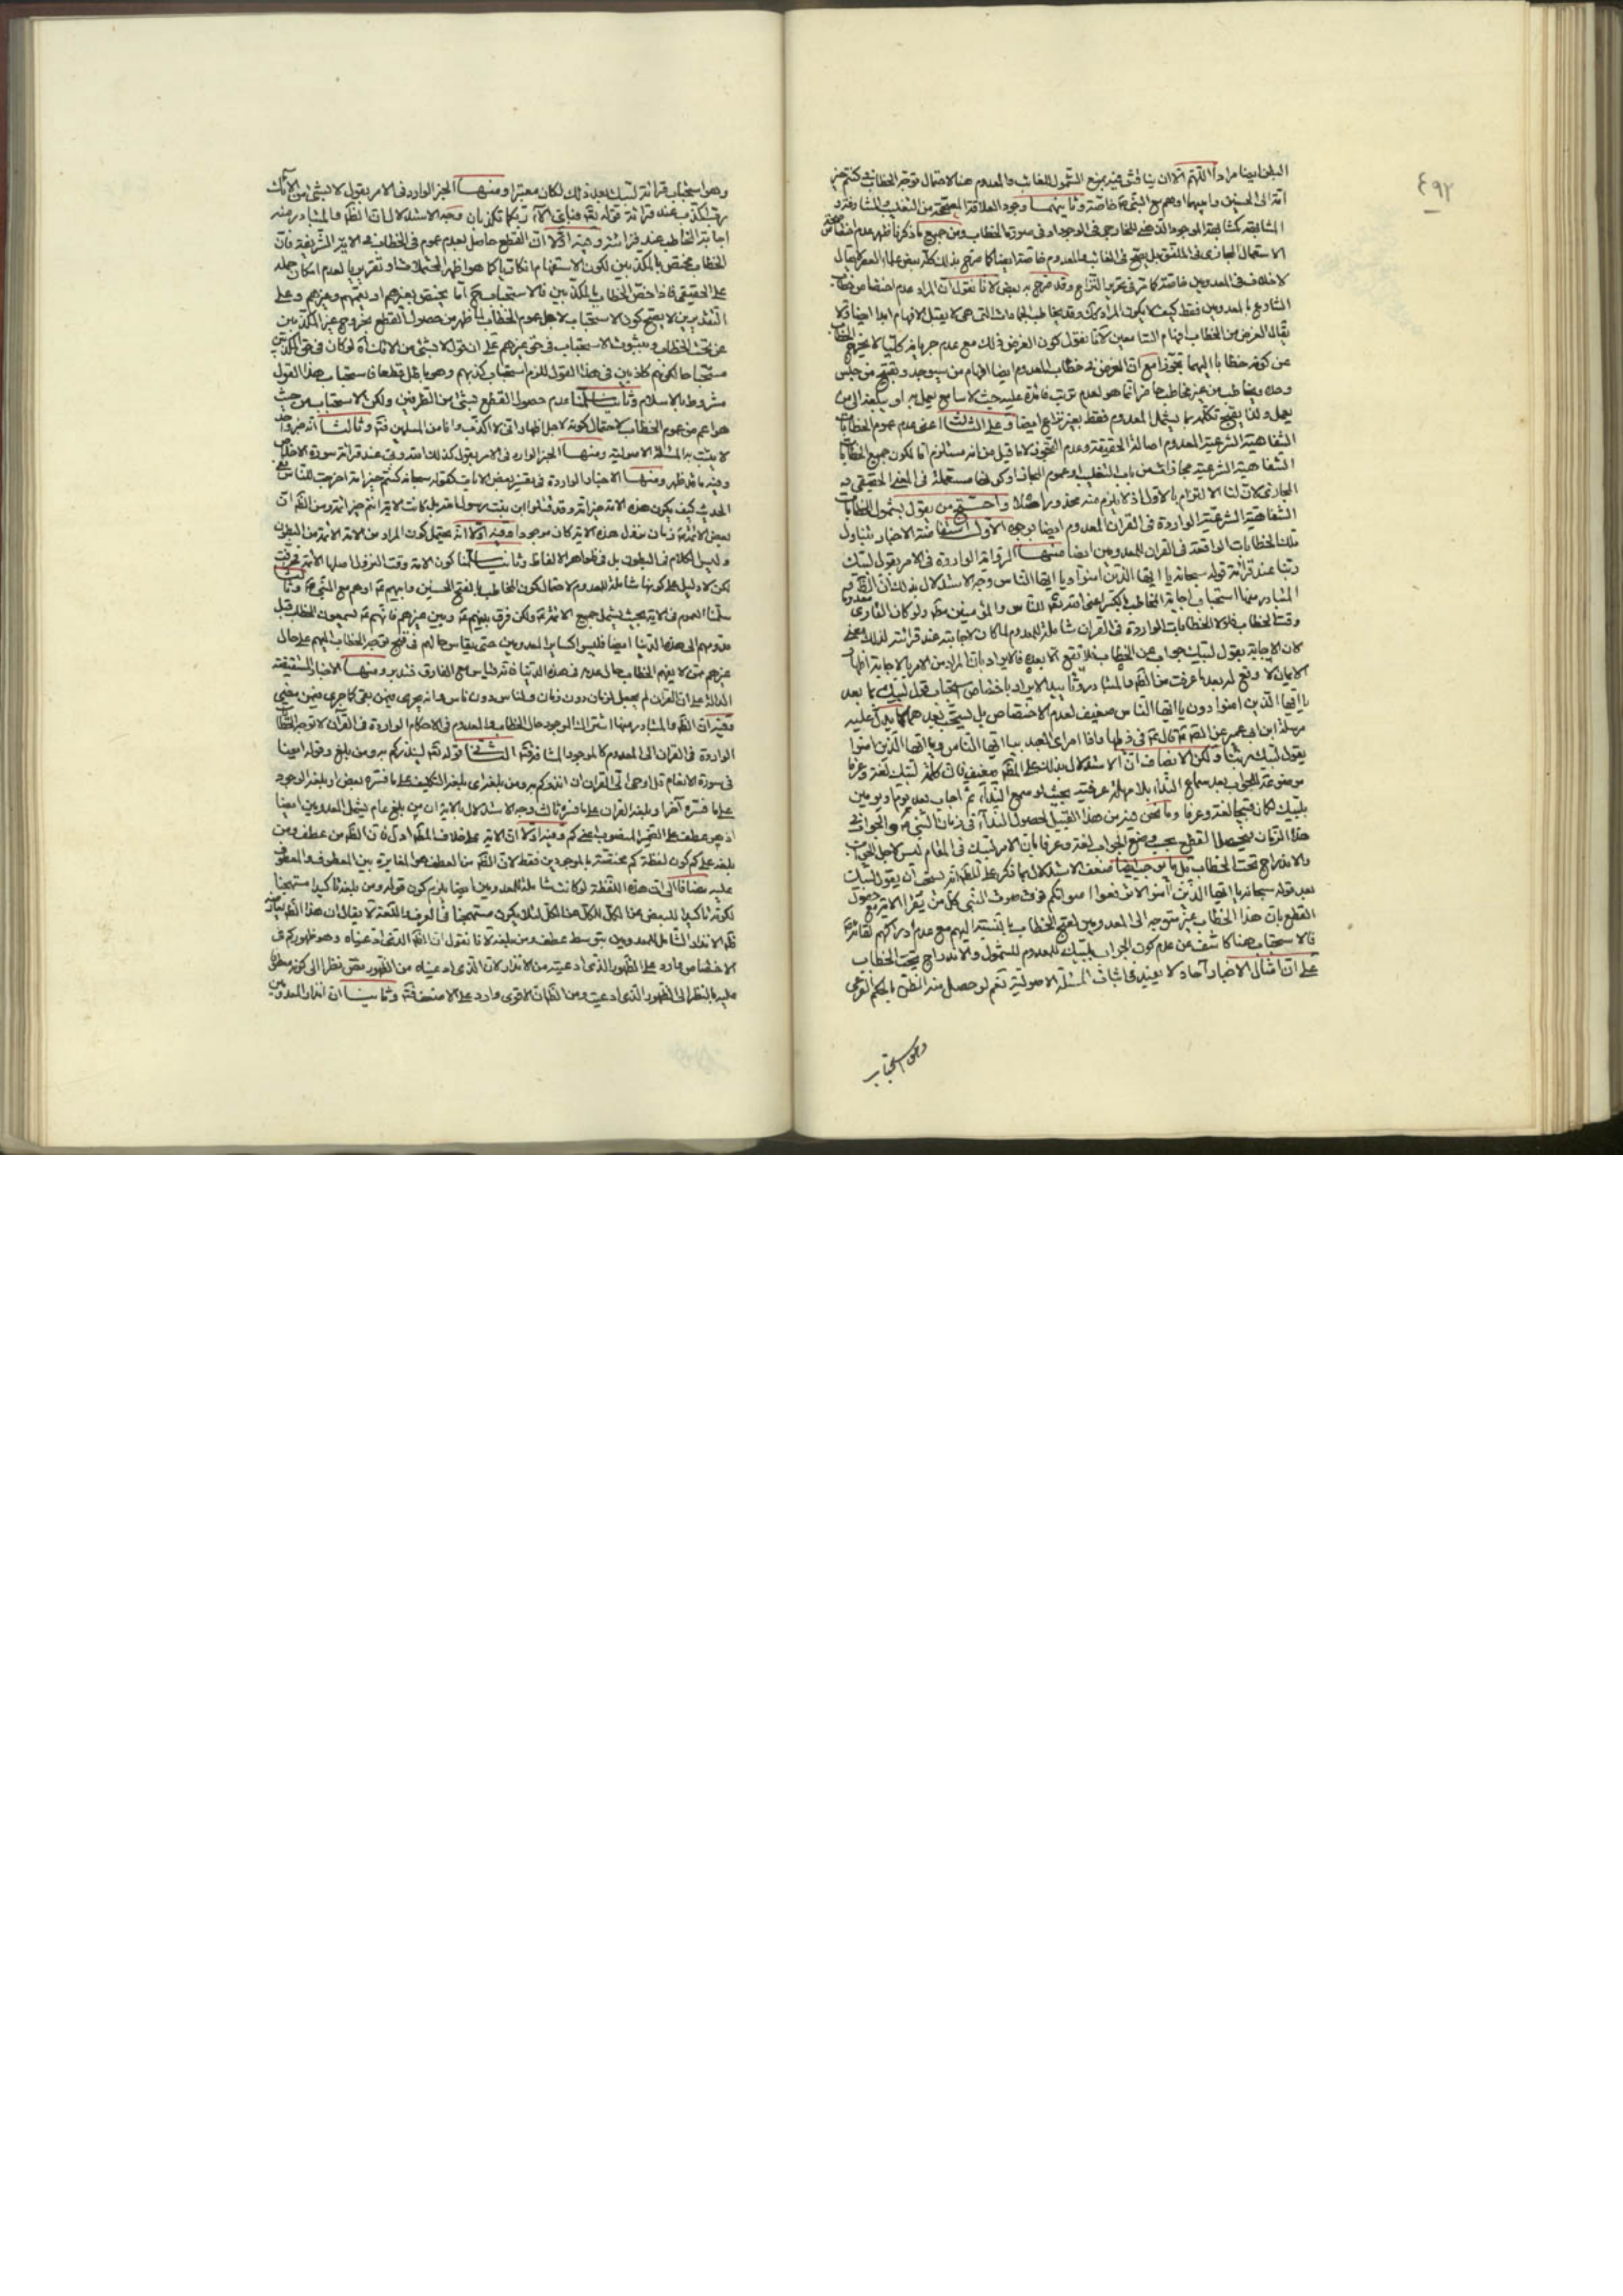 ٤٩٢
البطن ايضا مرادا اللّهمّ الا ان يناقش فيه بمنع الشمول للغائب والمعدوم هنا لاحتمال توجه الخطاب في كنتم خير
امّة الى الحسنين وابيهما او هم مع النبي خاصّة وثانيهما وجود العلاقة المصححة من التغليب والمشارفة و
المشابهة كمشابهة الموجود الذهني للخارجي في الوجود او في سورة الخطاب ومن جميع ما ذكرنا ظهر عدم اختصاص صحة
الاستعمال المجازي في الملفق بل يصح في الغائب والمعدوم خاصة ايضا كما صرح بذلك بعض علماء العصر لا يقال
لا خلاف في المعدومين خاصة كما مر في تحرير النزاع وقد صرح به بعض لانا نقول ان المراد عدم اختصاص خطاب
الشارع بالمعدومين فقط كيف لا يكون المراد ذلك وقد يخاطب الجمادات التي هي لا يقبل الافهام ابدا ايضا ولا
يقال الغرض من الخطاب افهام السامعين لانا نقول كون الغرض ذلك مع عدم جريانه كليا لا يخرج الخطاب
عن كونه خطابا اليهما تجوزا مع ان الغرض في خطاب المعدوم ايضا افهام من سيوجد ويقبح من جلس
وحده ويخاطب من غير مخاطب حاضر انما هو لعدم ترتب فائدة عليه حيث لا سامع يعمل به او يبلغه الى من
يعمل ولذا يقبح تكلمه بما يشمل المعدوم فقط بغير نزاع ايضا وعلى الثالث اعني عدم عموم الخطابات
الشفاهية الشرعية المعدوم اصالة الحقيقة وعدم التجوز لا ما قيل من انه مستلزم اما لكون جميع الخطابات
الشفاهية الشرعية مجازات من باب التغليب او عموم المجاز او كونها مستعملة في المعنى الحقيقي و
المجازي لان لنا الالتزام بالاول اذ لا يلزم منه محذور اصلا واحتج من يقول بشمول الخطابات
الشفاهية الشرعية الواردة في القران المعدوم ايضا بوجوه الاول استفاضة الاخبار بتناول
تلك الخطابات الواقعة في القران للمعدومين ايضا منها الرواية الواردة في الامر بقول لبيك
ربنا عند قرائة قوله سبحانه يا ايها الذين امنوا ويا ايها الناس وجه الاستدلال بذلك ان الظاهر و
المتبادر منها استحباب اجابة المخاطب بالكسر اعني الله تعالى للناس والمؤمنين منه ولو كان القارى معدوما
وقت الخطاب فلولا الخطابات الواردة في القران شاملة للمعدوم لما كان لاجابته عند قرائته لذلك معنى
لان الاجابة بقول لبيك جواب عن الخطاب فلا تقع الا بعده فالايراد بان المراد من الامر بالاجابة اظهار
الايمان لا وقع له بعد ما عرفت من الظاهر والمتبادر وتاييد الايراد باختصاص استحباب قول لبيك بما بعد
يا ايها الذين امنوا دون يا ايها الناس ضعيف لعدم الاختصاص بل يستحب بعدهما كما يدل عليه
مرسلة ابن ابي عمير عن الصادق قال في ذيلها واذا امر اى العبد بيا ايها الناس ويا ايها الذين امنوا
يقول لبيك ربنا ولكن الانصاف ان الاستدلال بذلك على المط ضعيف فان كلمة لبيك لغة وعرفا
موضوعة للجواب بعد سماع النداء بلا مهلة عرفية بحيث لو سمع النداء ثم اجاب بعد يوم او يومين
بلبيك لكان قبيحا لغة وعرفا وما نحن فيه من هذا القبيل لحصول النداء في زمان النبي والجواب في
هذا الزمان فيحصل القطع بحسب وضع الجواب لغة وعرفا بان الامر بلبيك في المقام ليس لاجل الجواب
والاندراج تحت الخطاب بل ضعف الاستدلال بما ذكر على المط انه يستحب ان يقول لبيك
بعد قوله سبحانه يا ايها الذين آمنوا لا ترفعوا اصواتكم فوق صوت النبي كل من يقرأ الاية مع حصول
القطع بان هذا الخطاب غير متوجه الى المعدومين لقبح الخطاب بالنسبة اليهم مع عدم ادراكهم لقائه
فالاستحباب هنا كاشف عن عدم كون الجواب بلبيك للمعدوم للشمول والاندراج تحت الخطاب
على ان امثال الاخبار آحاد لا يفيد في اثبات المسئلة الاصولية نعم لو حصل منه الظن بالحكم الفرعي
وهو استحباب
وهو استحباب قرائة لبيك بعد ذلك لكان معتبرا ومنها الخبر الوارد في الامر بقول لا بشيء من آلائك
رب اكذب عند قرائة قوله تعالى فباي آلاء ربكما تكذبان وجه الاستدلال ان الظاهر والمتبادر منه
اجابة المخاطب عند قرائته وفيه اولا ان القطع حاصل بعدم عموم في الخطاب في الاية الشريفة فان
الخطاب مختص بالمكذبين لكون الاستفهام انكاريا كما هو اظهر المحتملات او تقريريا لعدم امكان حمله
على الحقيقي فاذا خص الخطاب بالمكذبين فالاستحباب ح اما يختص بغيرهم او يعمهم وغيرهم وعلى
التقديرين لا يصح كون الاستحباب لاجل عموم الخطاب لما ظهر من حصول القطع بخروج غير المكذبين
عن تحت الخطاب وبثبوت الاستحباب في حق غيرهم على ان قول لا بشيء من الائك اه لو كان في حق المكذبين
مستحبا حال كونهم كاذبين في هذا القول للزم استحباب كذبهم وهو باطل قطعا فاستحباب هذا القول
مشروط بالاسلام وثانيا سلمنا عدم حصول القطع بشيء من الطرفين ولكن الاستحباب من حيث
هو اعم من عموم الخطاب لاحتمال كونه لاجل اظهار اني لا اكذب وانا من المسلمين فتأمل وثالثا انه خبر واحد
لا يثبت به المسئلة الاصولية ومنها الخبر الوارد في الامر بقول كذلك الله ربي عند قرائة سورة الاخلاص
وفيه ما قد ظهر ومنها الاخبار الواردة في تفسير بعض الايات كقوله سبحانه كنتم خير امة اخرجت للناس ففي
الحديث كيف يكون هذه الامة خير امة وقد قتلوا ابن بنت رسول الله بل كانت الاية انتم خير ائمة ومن الظاهر ان
بعض الائمة في زمان نزول هذه الاية كان موجودا وفيه اولا انه يحتمل كون المراد من الامة الائمة من البطون
وليس الكلام في البطون بل في ظواهر الالفاظ وثانيا سلمنا كون الامة وقت النزول اصلها الائمة فحرفت
لكن لا دليل على كونها شاملة للمعدوم لاحتمال كون المخاطب بالفتح الحسنين وابيهم او هم مع النبي وثالثا
سلمنا العموم في الاية بحيث يشمل جميع الائمة ولكن فرق بينهم وبين غيرهم فانهم يسمعون الخطاب قبل
قدومهم الى هذه الدنيا ايضا فليس كساير المعدومين حتى يقاس حالهم في قبح توجه الخطاب اليهم على حال
غيرهم ممن لا يفهم الخطاب حال عدمه في هذه الدنيا فانه قياس مع الفارق فتدبر ومنها الاخبار المستفيضة
الدالة على ان القران لم يجعل لزمان دون زمان ولناس دون ناس وانه يجرى فيمن بقى كما جرى فيمن مضى
وفيه ان الظاهر والمتبادر منها اشتراك الموجود حال الخطاب والمعدوم في الاحكام الواردة في القرآن لا توجه الخطابات
الواردة في القران الى المعدوم كالموجود المشافه الثاني قوله تعالى لينذركم به ومن بلغ وقوله ايضا
في سورة الانعام قل اوحى الي القران ان انذركم به ومن بلغ اى بلغه التكليف على ما فسره بعض او بلغه الوجود
على ما فسره آخر او بلغه القران على ما فسره ثالث وجه الاستدلال بالاية ان من بلغ عام يشمل المعدومين ايضا
اذ هو عطف على الضمير المنصوب اعني كم وفيه اولا ان الاية على خلاف المط ادل فان الظاهر من عطف ومن
بلغه على كم كون لفظة كم مختصة بالموجودين فقط لان الظاهر من العطف هو المغايرة بين المعطوف والمعطوف
عليه مضافا الى ان هذه اللفظة لو كانت شاملة للمعدومين ايضا يلزم كون قوله ومن بلغ تاكيدا مستهجنا
لكونه تاكيدا للبعض من الكل لا للكل هذا الكل لذلك يكون مستهجنا في العرف واللغة لا يقال ان هذا الظاهر يعارضه
ظهر الانذار الشامل للمعدومين بتوسط عطف ومن بلغ لانا نقول ان الظاهر الذي ادعيناه وهو ظهور كم في
الاختصاص وارد على الظهور الذي ادعيته من الانذار لان الذي ادعيناه من الظهور نص نظرا الى كونه معطوفا
عليه بالنظر الى الظهور الذي ادعيت ومن الظاهر ان الاقوى وارد على الاضعف فتأمل وثانيا ان انذار المعدومين